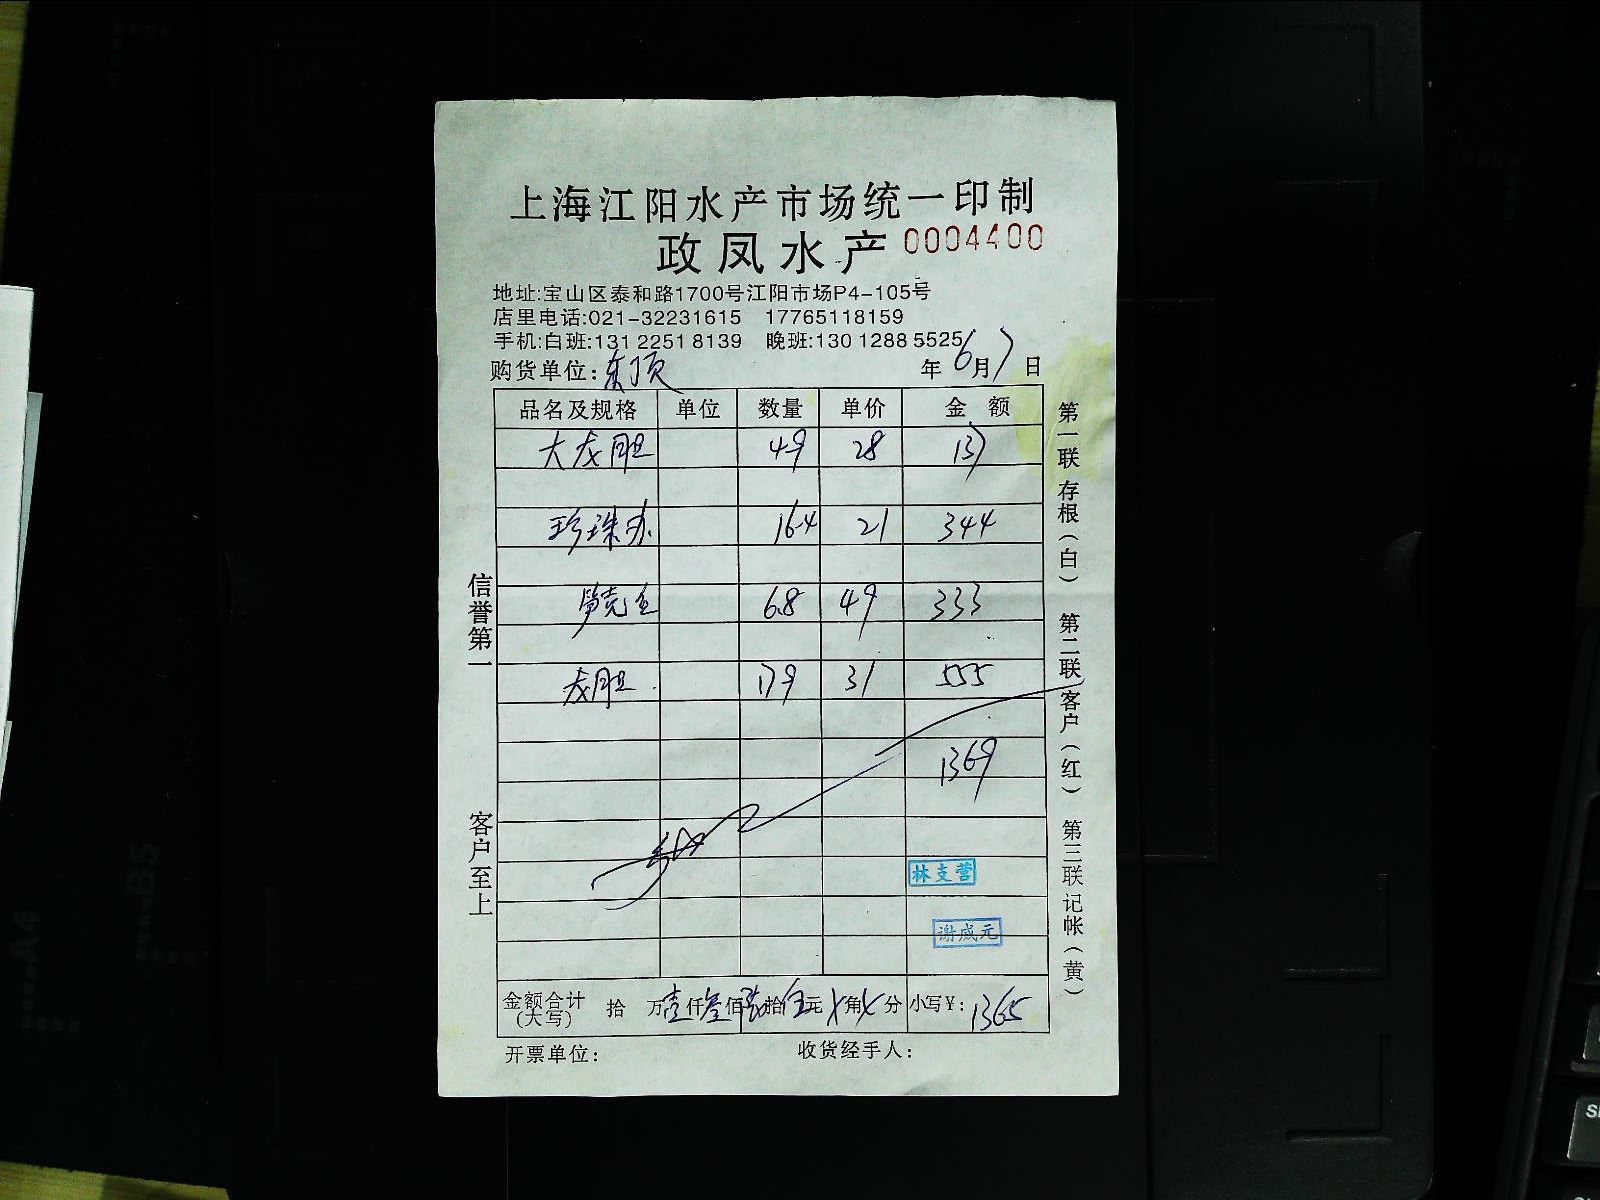 上海江阳水产市场统一印制
政凤水产 0004400
地址:宝山区泰和路1700号江阳市场P4-105号
店里电话:021-32231615 17765118159
手机:白班:131 2251 8139 晚班:130 1288 5525
购货单位: 年6月7日
品名及规格 单位 数量 单价 金额
大龙胆 49 28 137
珍珠 16.4 21 344
6.8 49 333
龙胆 179 31 555
1369
林支营
谢成元
金额合计(大写) 拾万壹仟叁佰陆拾伍元X角X分 小写¥: 1365
开票单位: 收货经手人:
信誉第一
客户至上
第一联存根(白) 第二联客户(红) 第三联记帐(黄)
A4
B5